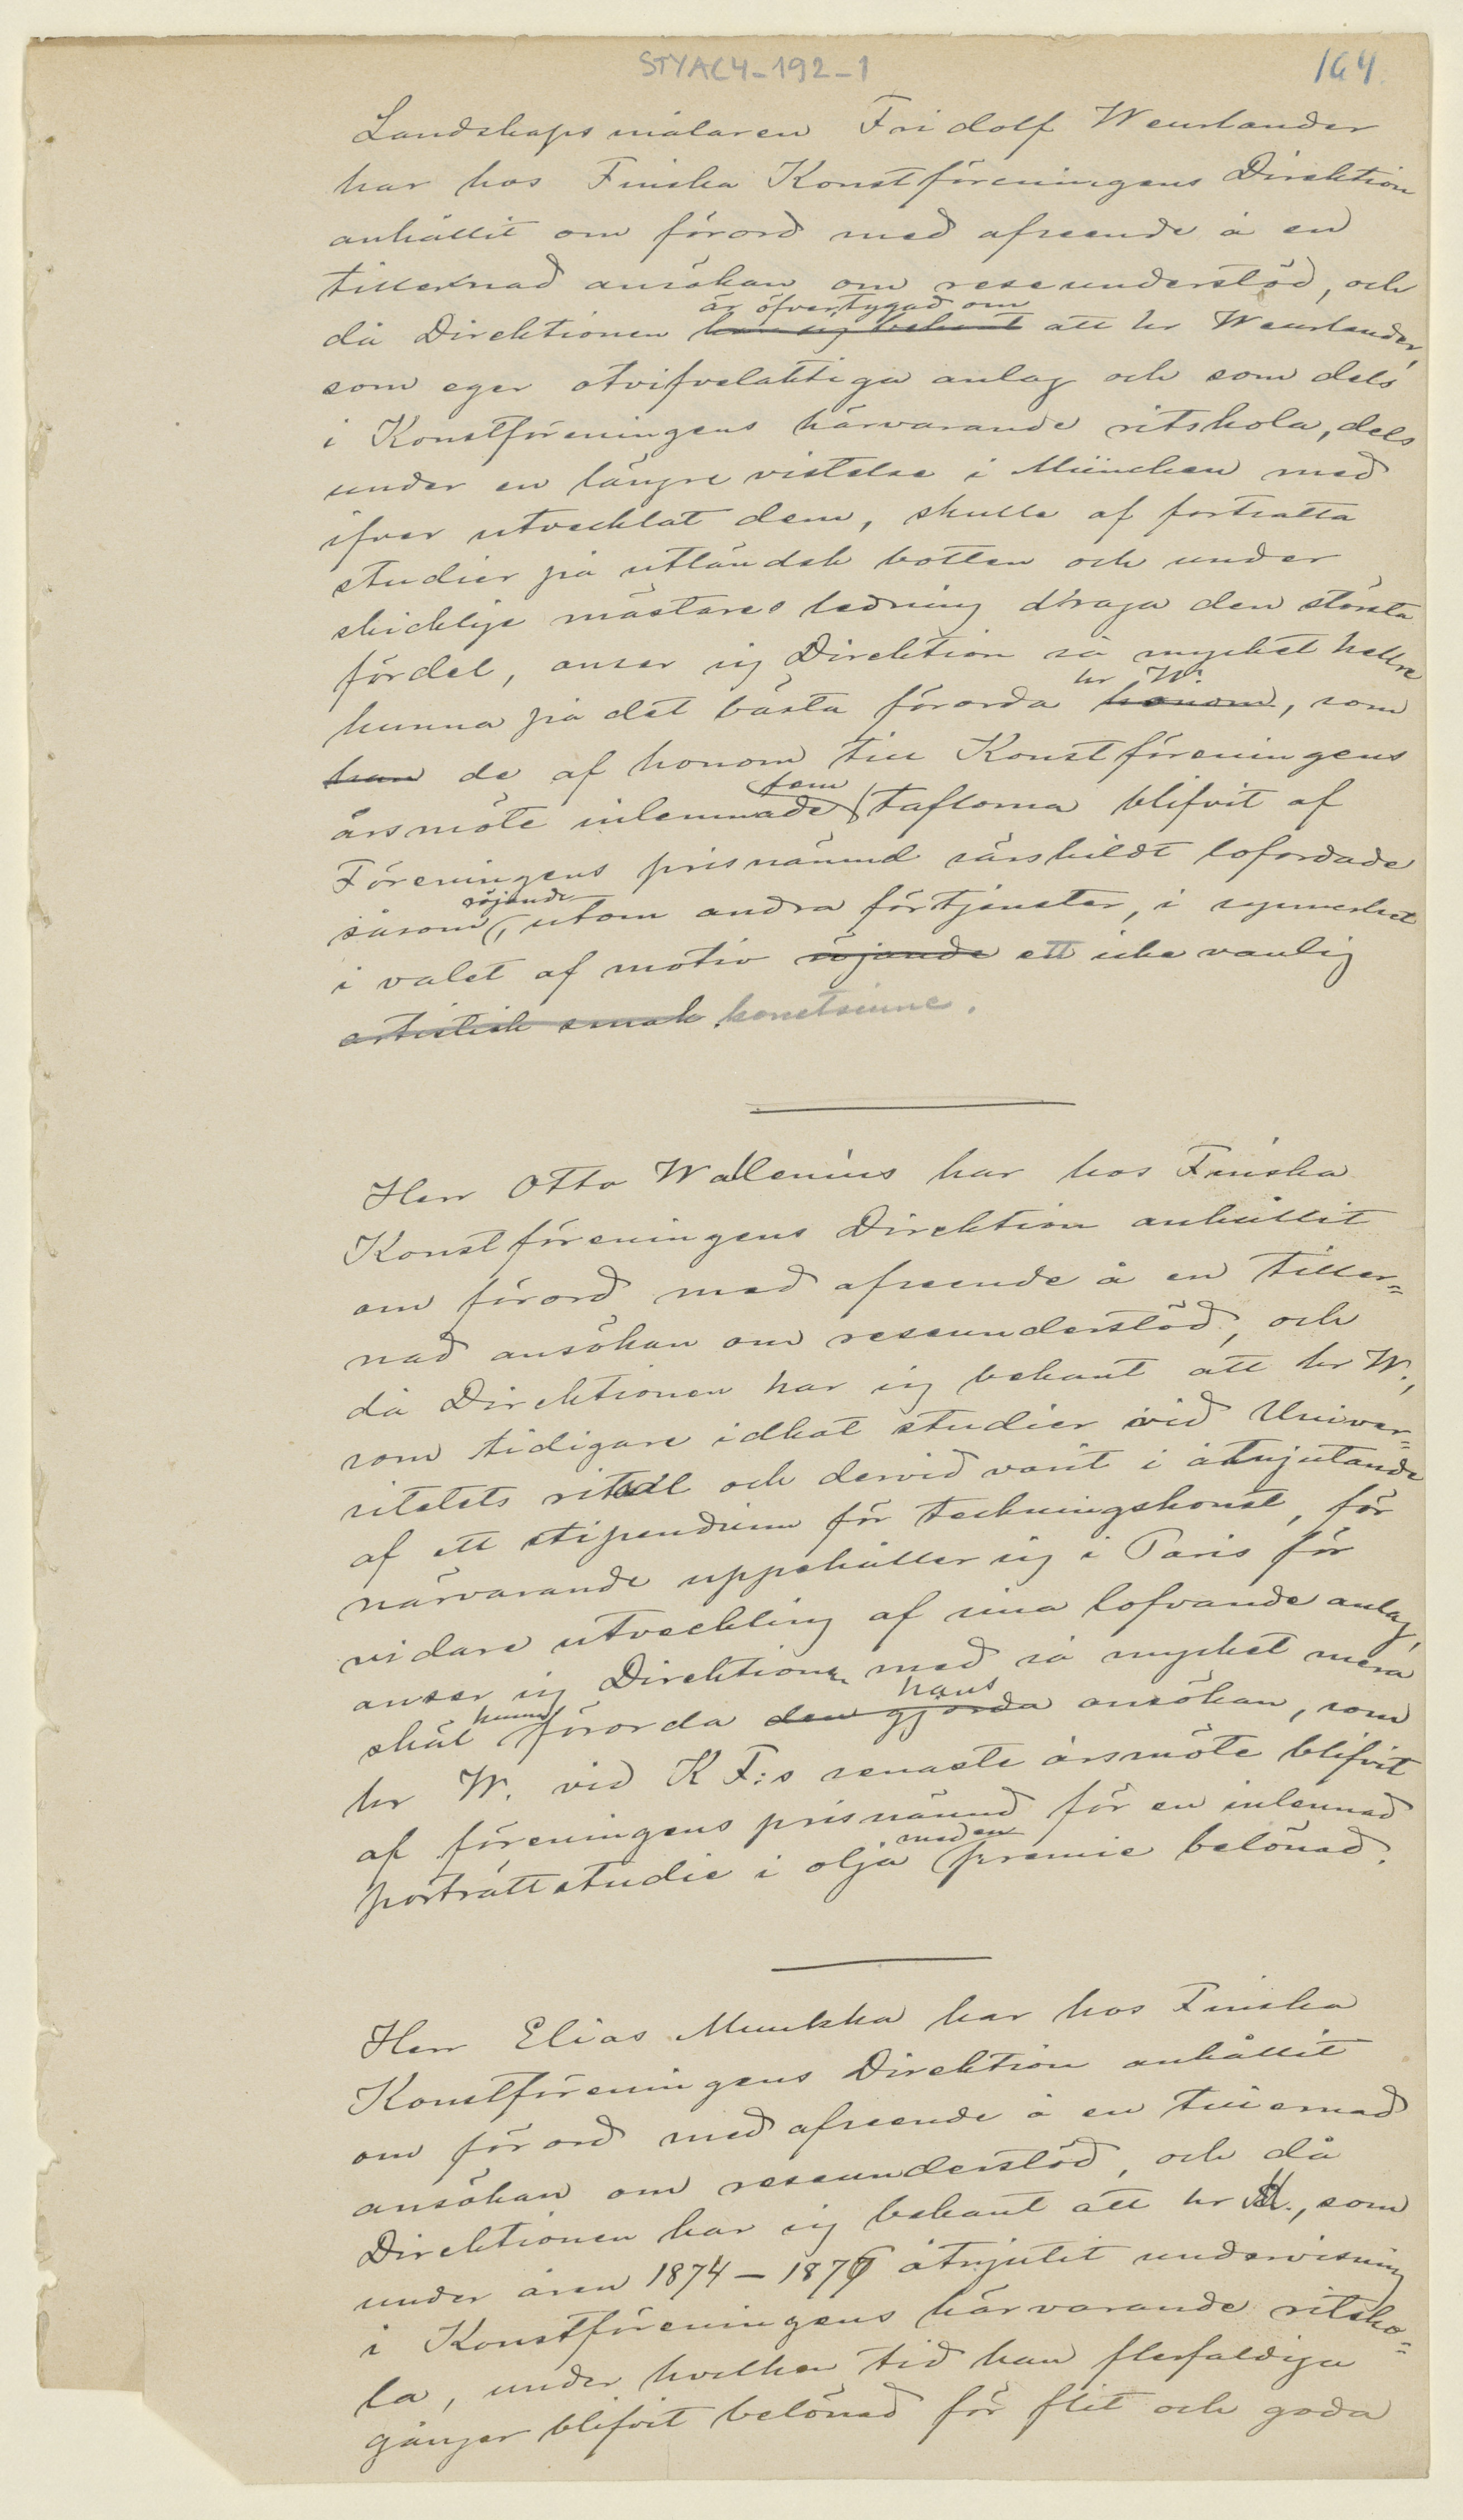 STYAC4-192-1
164
Landskapsmålaren Fridolf Weurlander
har hos Finska Konstföreningens Direktion
anhållit om förord med afseende å en
tillernad ansökan om reseunderstöd, och
är öfvertygad om
då Direktionen har sig bekant att hr Weurlander,
som eger otvifvelaktiga anlag och som dels
i Konstföreningens härvarande ritskola, dels
under en längre vistelse i München med
ifver utvecklat dem, skulle af fortsatta
studier på utländsk botten och under
skicklige mästares ledning draga den största
fördel, anser sig Direktion så mycket hellre
hr W.
kunna på det bästa förorda honom, som
han de af honom till Konstföreningens
fem
årsmöte inlemnade taflorna blifvit af
Föreningens prisnämnd särskildt lofordade
röjande
såsom, utom andra förtjenster, i synnerhet
i valet af motiv röjande ett icke vanlig
artistisk smak. konstsinne.
Herr Otto Wallenius har hos Finska
Konstföreningens Direktion anhållit
om förord med afseende å en tiller=
nad ansökan om reseunderstöd, och
då Direktionen har sig bekant att hr W.,
som tidigare idkat studier vid Univer=
sitetets ritsal och dervid varit i åtnjutande
af ett stipendium för teckningskonst, för
närvarande uppehåller sig i Paris för
vidare utveckling af sina lofvande anlag,
anser sig Direktionen med så mycket mera
kunna hans
skäl förorda den gjorda ansökan, som
hr W. vid K F:s senaste årsmöte blifvit
af föreningens prisnämnd för en inlemnad
med en
porträttstudie i olja premie belönad.
Herr Elias Muukka har hos Finska
Konstföreningens Direktion anhållit
om förord med afseende å en tillernad
ansökan om reseunderstöd, och då
Direktionen har sig bekant att hr M., som
under åren 1874-1876 åtnjutit undervisning
i Konstföreningens härvarande ritsko=
la, under hvilken tid han flerfaldiga
gånger blifvit belönad för flit och goda